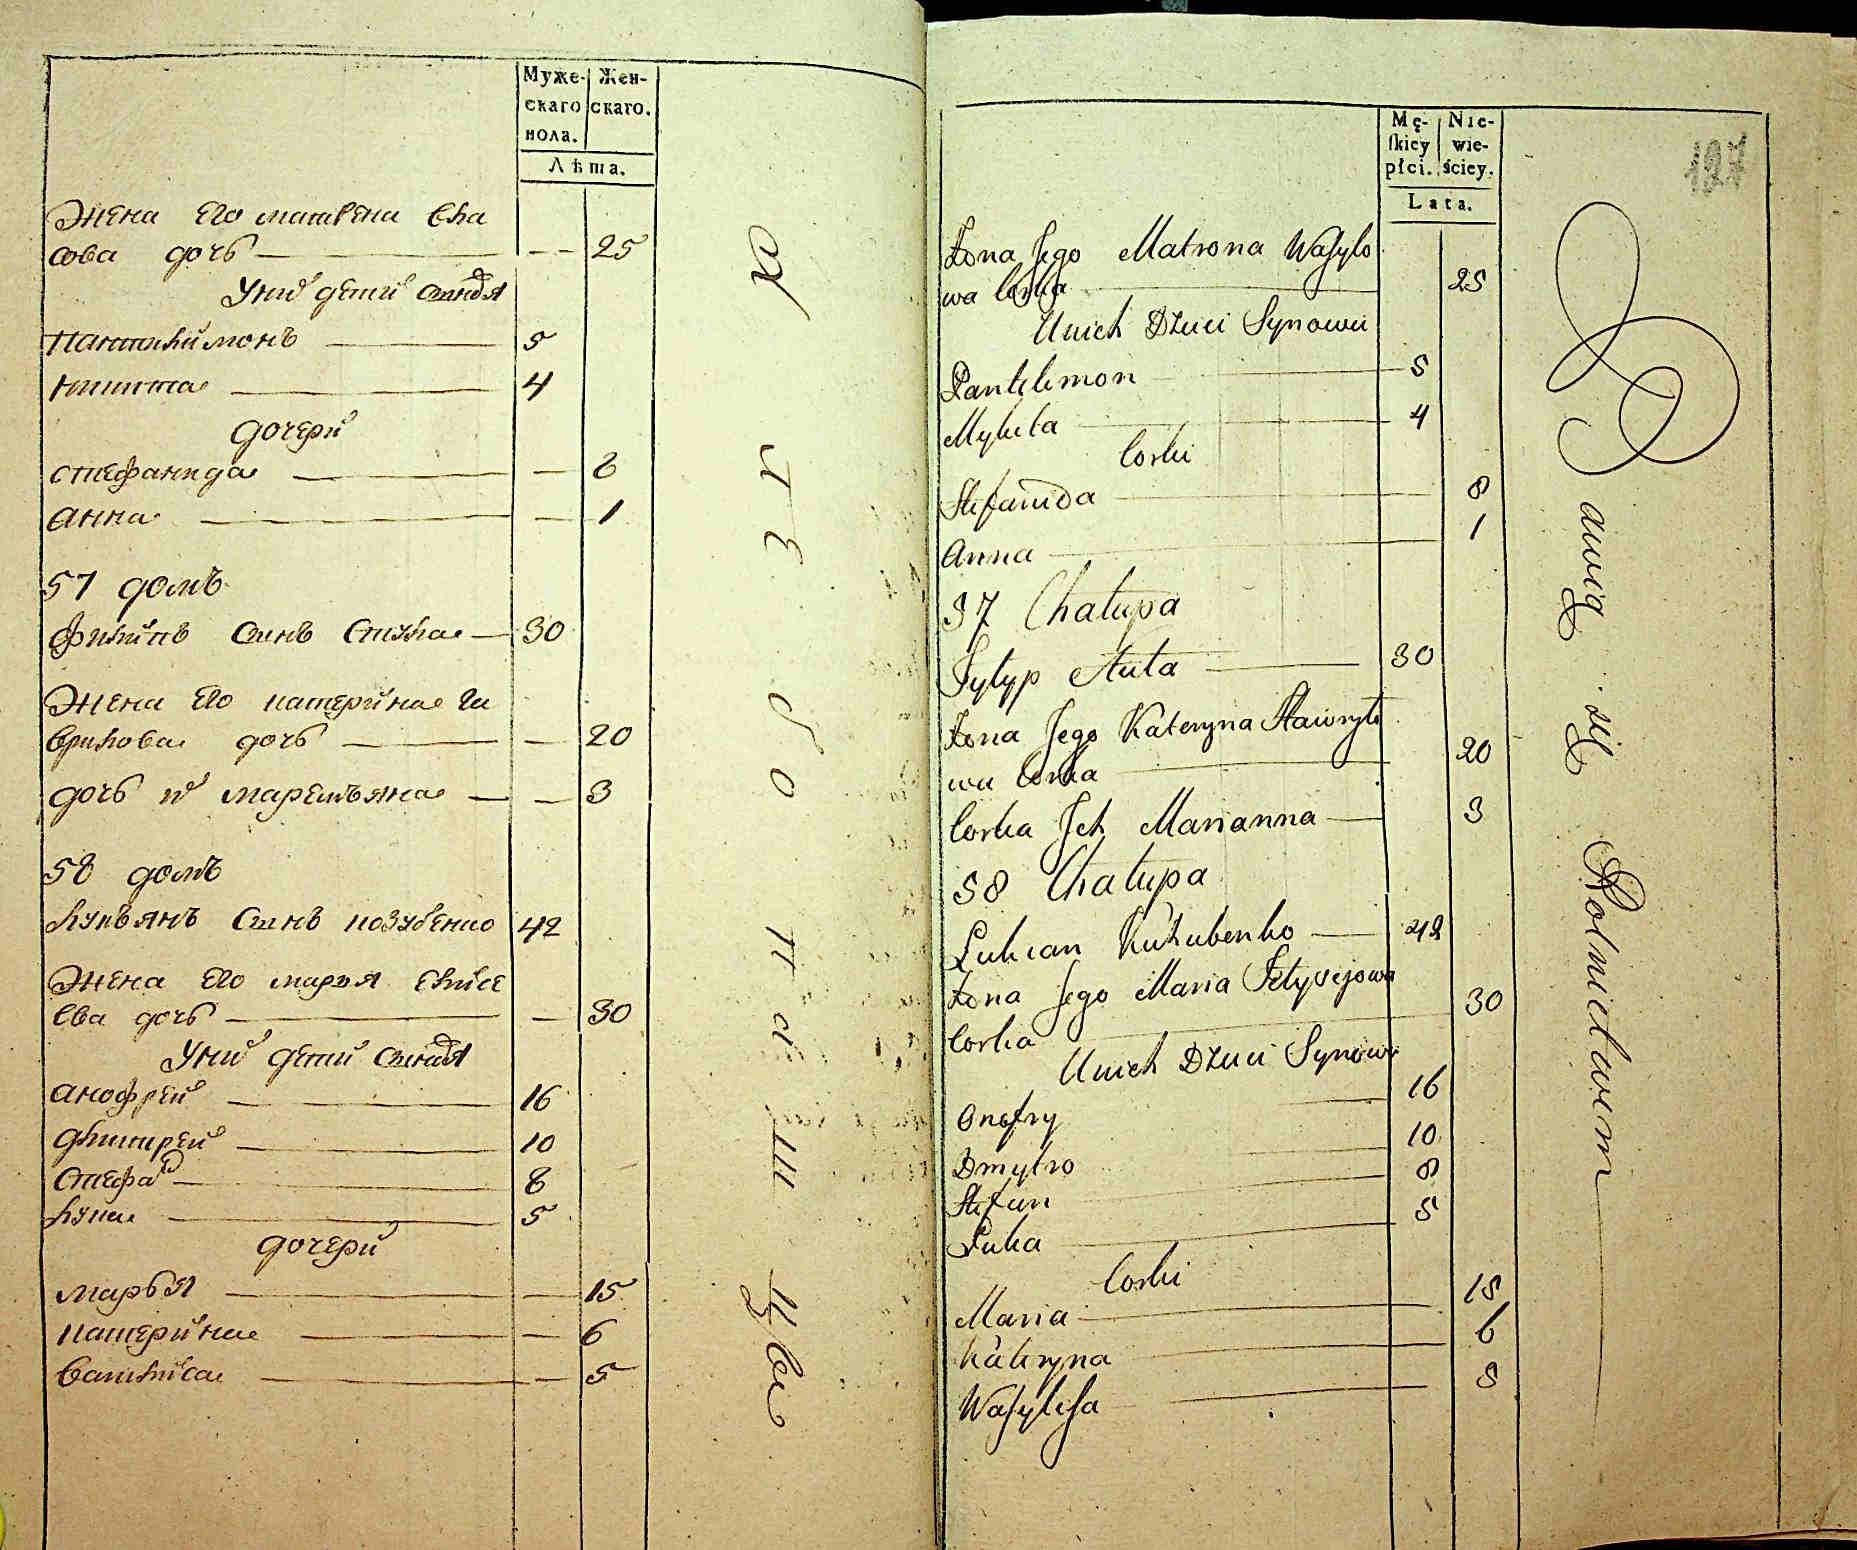 Муже-
скаго
пола.
Жен-
скаго.
Лѣта.
жена его матрена вла
сова дочь 25
У них дети синовя
Пантилимонъ 5
Микита 4
дочери
стефанида 8
анна 1
57 домъ
филипъ синъ стука 30
жена его катерина га
врилова дочь 20
дочь их маремьяна 3
58 домъ
лукьянъ синъ козубенко 42
жена его марья елисе
ева дочь 30
У них дети синовя
анофрей 16
дмитрей 10
стефан 8
лука 5
дочери
марья 15
катерина 6
василиса 5
Mę-
skiey
płci.
Nie-
wie-
ściey.
Lata.
127
Żona Jego Matrona Wasylo
wa Corka 25
U nich Dzieci Synowie
Pantelimon 5
Mykita 4
Corki
Stefanida 8
Anna 1
57 Chałupa
Fylyp Stuka 30
Żona Jego Kateryna Hawryło
wa Corka 20
Corka Ich Marianna 3
58 Chałupa
Lukian Kuzubenko 42
Żona Jego Maria
Corka 30
U nich Dzieci Synowie
Onofry 16
Dmytro 10
Stefan 8
Luka 5
Corki
Maria 15
Kateryna 6
Wasylisa 5
Bawią się Rolnictwem